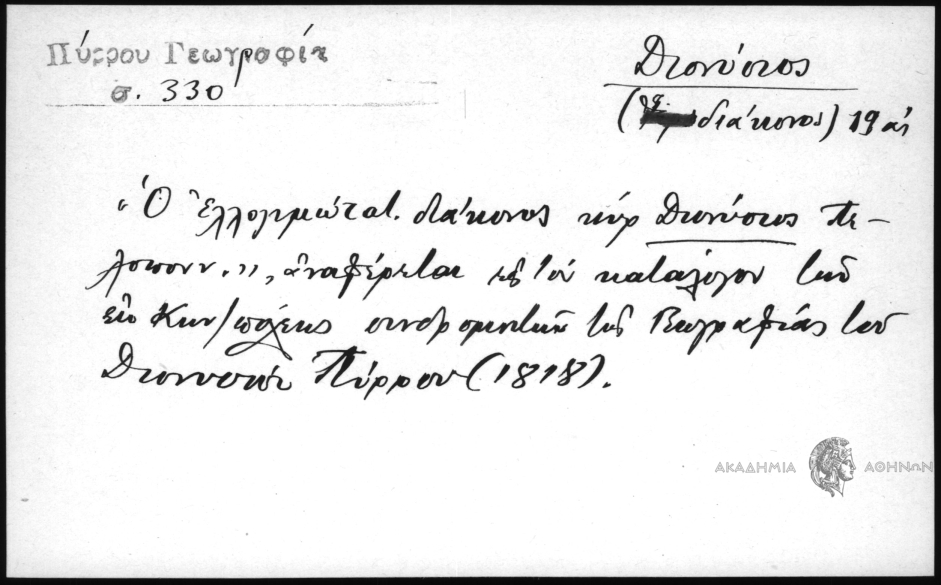 Πύρρου Γεωγραφία
σ. 330
Διονύσιος
(διάκονος) 19 αἰ
"Ὁ Ἐλλογιμώτατ. διάκονος κύρ Διονύσιος Πε-
λοπονν.", ἀναφέρεται εἰς τὸν κατάλογον τῶν
ἐκ Κων/πόλεως συνδρομητῶν τῆς Γεωγραφίας τοῦ
Διονυσίου Πύρρου (1818).
ΑΚΑΔΗΜΙΑ ΑΘΗΝΩΝ